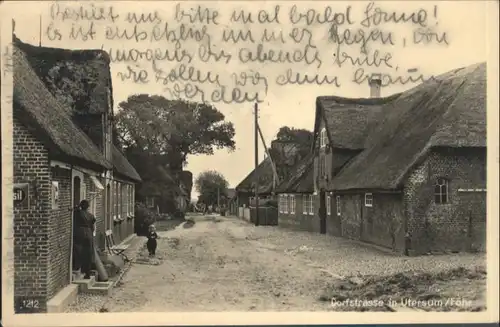 Bestellt uns bitte mal bald Sonne!
Es ist entsetzlich immer Regen, von
morgens bis abends trübe,
wie sollen wir da denn braun
werden
1212
Dorfstrasse in Utersum/Föhr